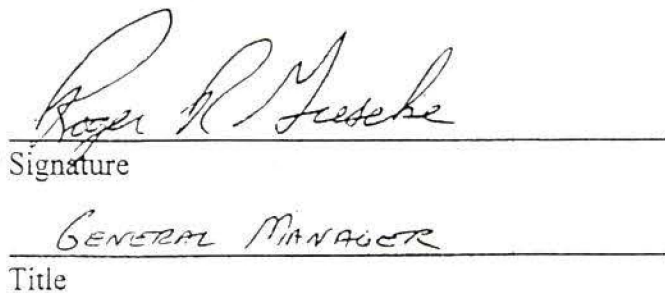 Roger R Gieseke
Signature
GENERAL MANAGER
Title